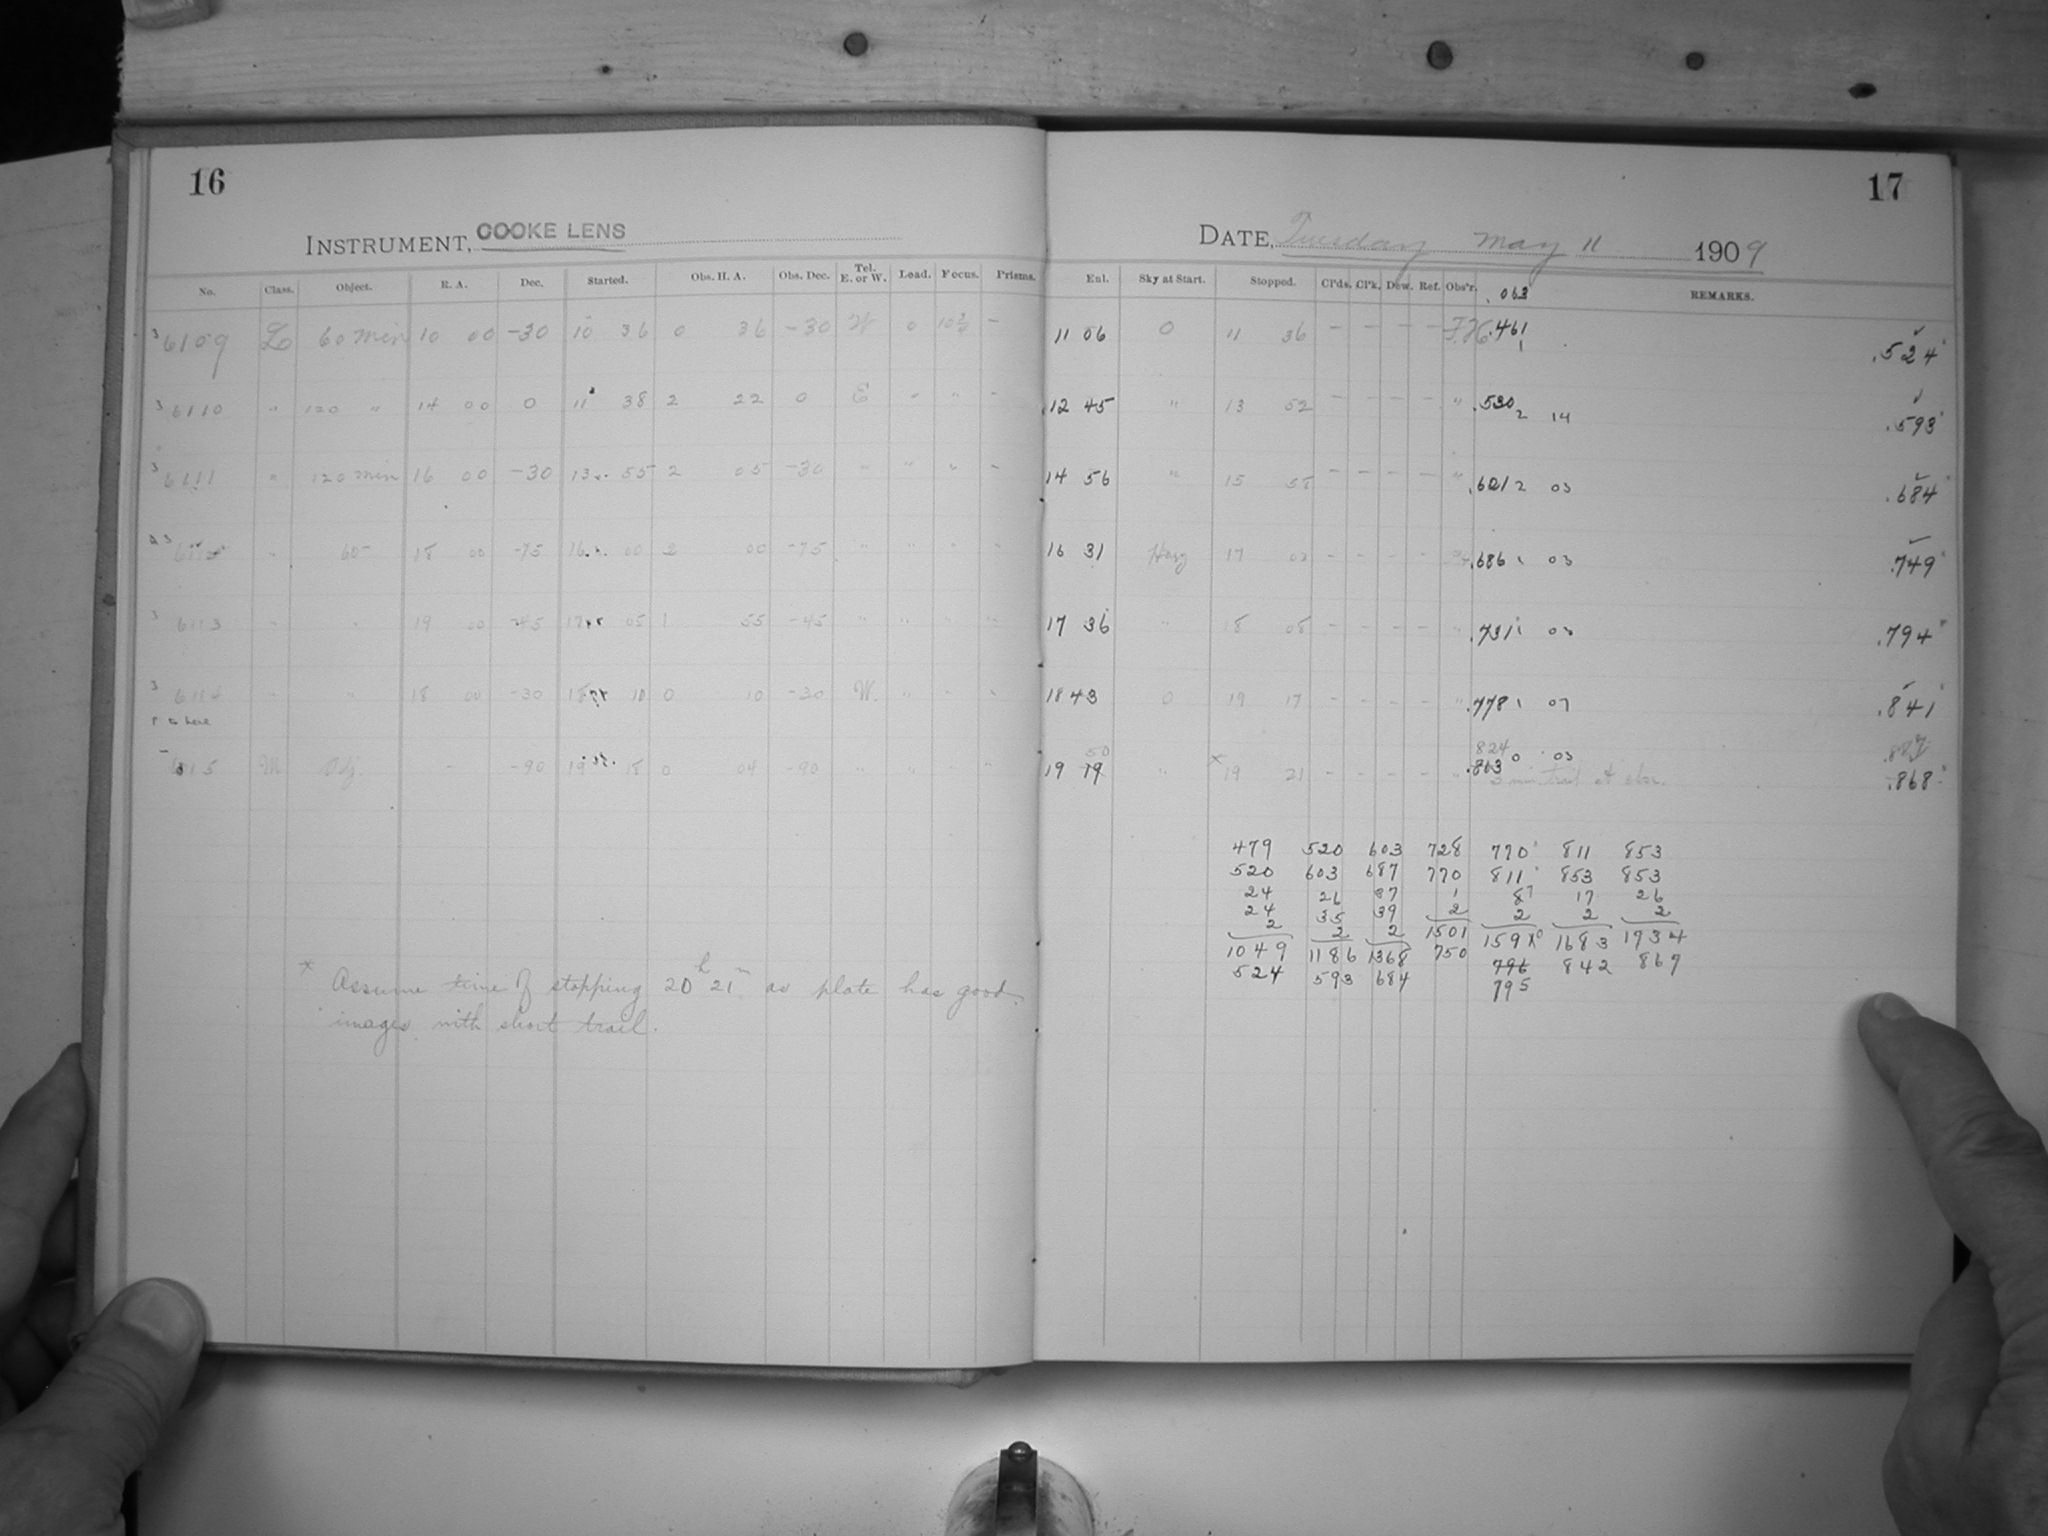 16
17
INSTRUMENT, COOKE LENS
DATE, Tuesday May 11 1909
No. Class. Object. R. A. Dec. Started. Obs. H. A. Obs. Dec. Tel. E. or W. Lead. Focus. Prisms. Enl. Sky at Start. Stopped. Cl'ds. Cl'k. Dew. Ref. Obs'r. REMARKS.
.063
3 6109 L 60 min 10 00 -30 10 36 0 36 -30 W 0 - 11 06 0 11 36 - - - - .461 1 .524
3 6110 " 120 " 14 00 0 11 38 2 22 0 E " " - 12 45 " 13 52 - - - - " .530 2 14 .593
3 6111 " 120 min 16 00 -30 13 55 2 05 -30 " " " - 14 56 " 15 58 - - - - " .621 2 03 .684
" 60 18 00 -75 16 00 2 00 -75 " " " " 16 31 Hazy 17 03 - - - - .686 1 03 .749
3 6113 " " 19 00 -45 17 05 1 55 -45 " " " " 17 36 " 18 08 - - - - " .731 1 03 .794
3 6114 " " 18 00 -30 18 10 0 10 -30 W. " " " 18 43 0 19 17 - - - - " .778 1 07 .841
to here
M Adj. - -90 19 18 0 04 -90 " " " 19 19 50 " * 19 21 - - - - " 824 .803 0 03
.868
479 520 603 728 770 811 853
520 603 687 770 811 853 853
24 26 37 1 8 17 26
24 35 39 2 2 2 2
2 2 2 1501 1591 1683 1734
1049 1186 1368 750 796 842 867
524 593 684 795
* Assume time of stopping 20h 21m as plate has good
images with short trail.